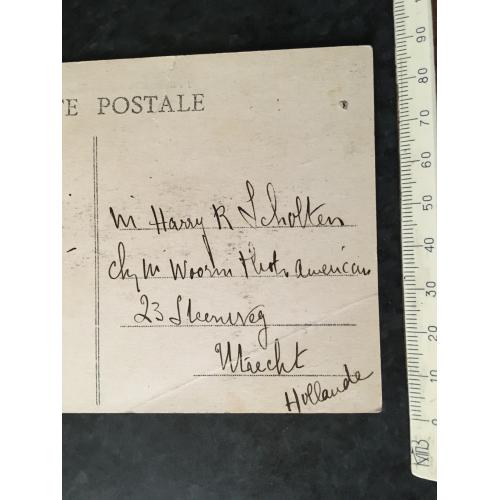 TE POSTALE
M Harry R Scholten
chez M Woorm Phot. americain
23 Steenweg
Utrecht
Hollande
90
80
70
60
50
40
30
20
10
0